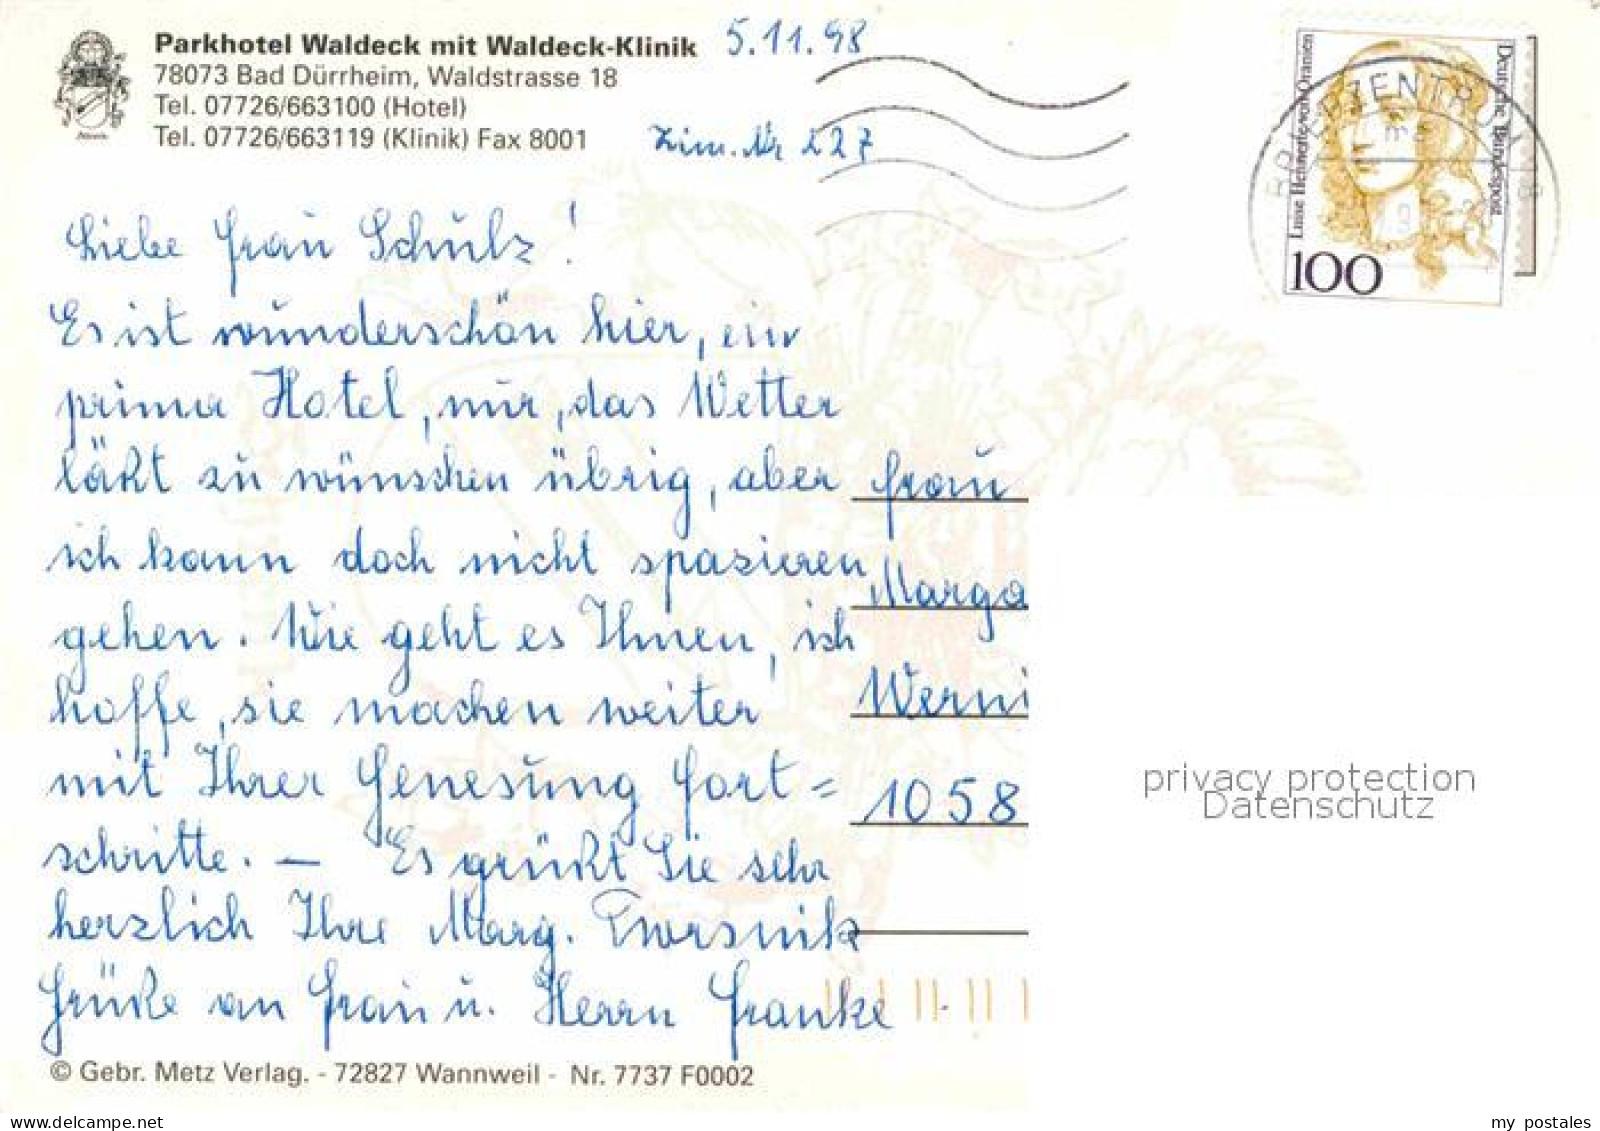 Parkhotel Waldeck mit Waldeck-Klinik
78073 Bad Dürrheim, Waldstrasse 18
Tel. 07726/663100 (Hotel)
Tel. 07726/663119 (Klinik) Fax 8001
5.11.98
Zim. Nr 227
Liebe Frau Schulz!
Es ist wunderschön hier, ein
prima Hotel, nur, das Wetter
läßt zu wünschen übrig, aber
ich kann doch nicht spazieren
gehen. Wie geht es Ihnen, ich
hoffe, sie machen weiter
mit Ihrer Genesung Fort=
schritte. — Es grüßt Sie sehr
herzlich Ihre Marg.
Grüße an Frau u. Herrn Franke
Frau
Marga
Werni
1058
Deutsche Bundespost
Luise Henriette von Oranien
100
BRIEFZENTRUM
privacy protection
Datenschutz
© Gebr. Metz Verlag. - 72827 Wannweil - Nr. 7737 F0002
www.delcampe.net
my_postales